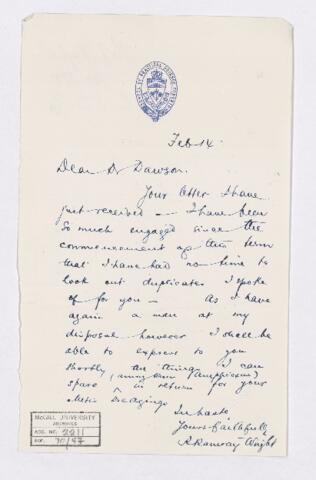 Feb 14.
Dear Dr Dawson.
Your letter I have
just received — I have been
so much engaged since the
commencement of this term
that I have had no time to
look out duplicates I spoke
of for you — As I have
again a man at my
disposal however I shall be
able to express to you
shortly any things I can
spare in return for your
In haste,
Yours faithfully
R Ramsay Wright
McGILL UNIVERSITY
ARCHIVES
ACC. NO. 2211
REF.